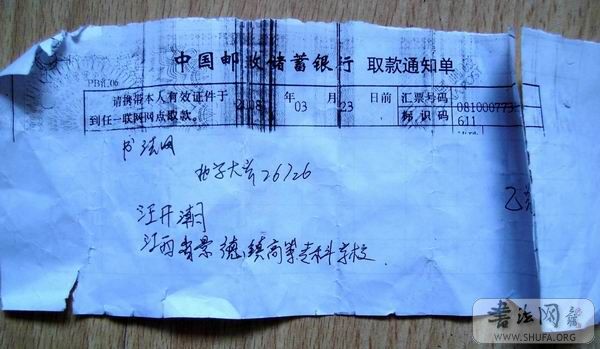 中国邮政储蓄银行 取款通知单
PBIL06
请携带本人有效证件于 2008 年 03 月 23 日前
到任一联网网点取款。
汇票号码 081000773
标识码 611
书法网
拍字大前26126
乙
汪开潮
江西省景德镇高等专科学校
书法网
WWW.SHUFA.ORG